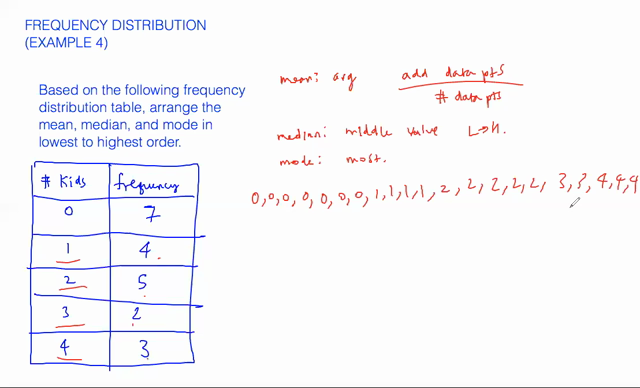 FREQUENCY DISTRIBUTION
(EXAMPLE 4)
Based on the following frequency
distribution table, arrange the
mean, median, and mode in
lowest to highest order.
# Kids frequency
0 7
1 4
2 5
3 2
4 3
mean: avg add data pts
# data pts
median: middle value L→H.
mode: most.
0,0,0,0,0,0,0,1,1,1,1,2,2,2,2,2,3,3,4,4,4